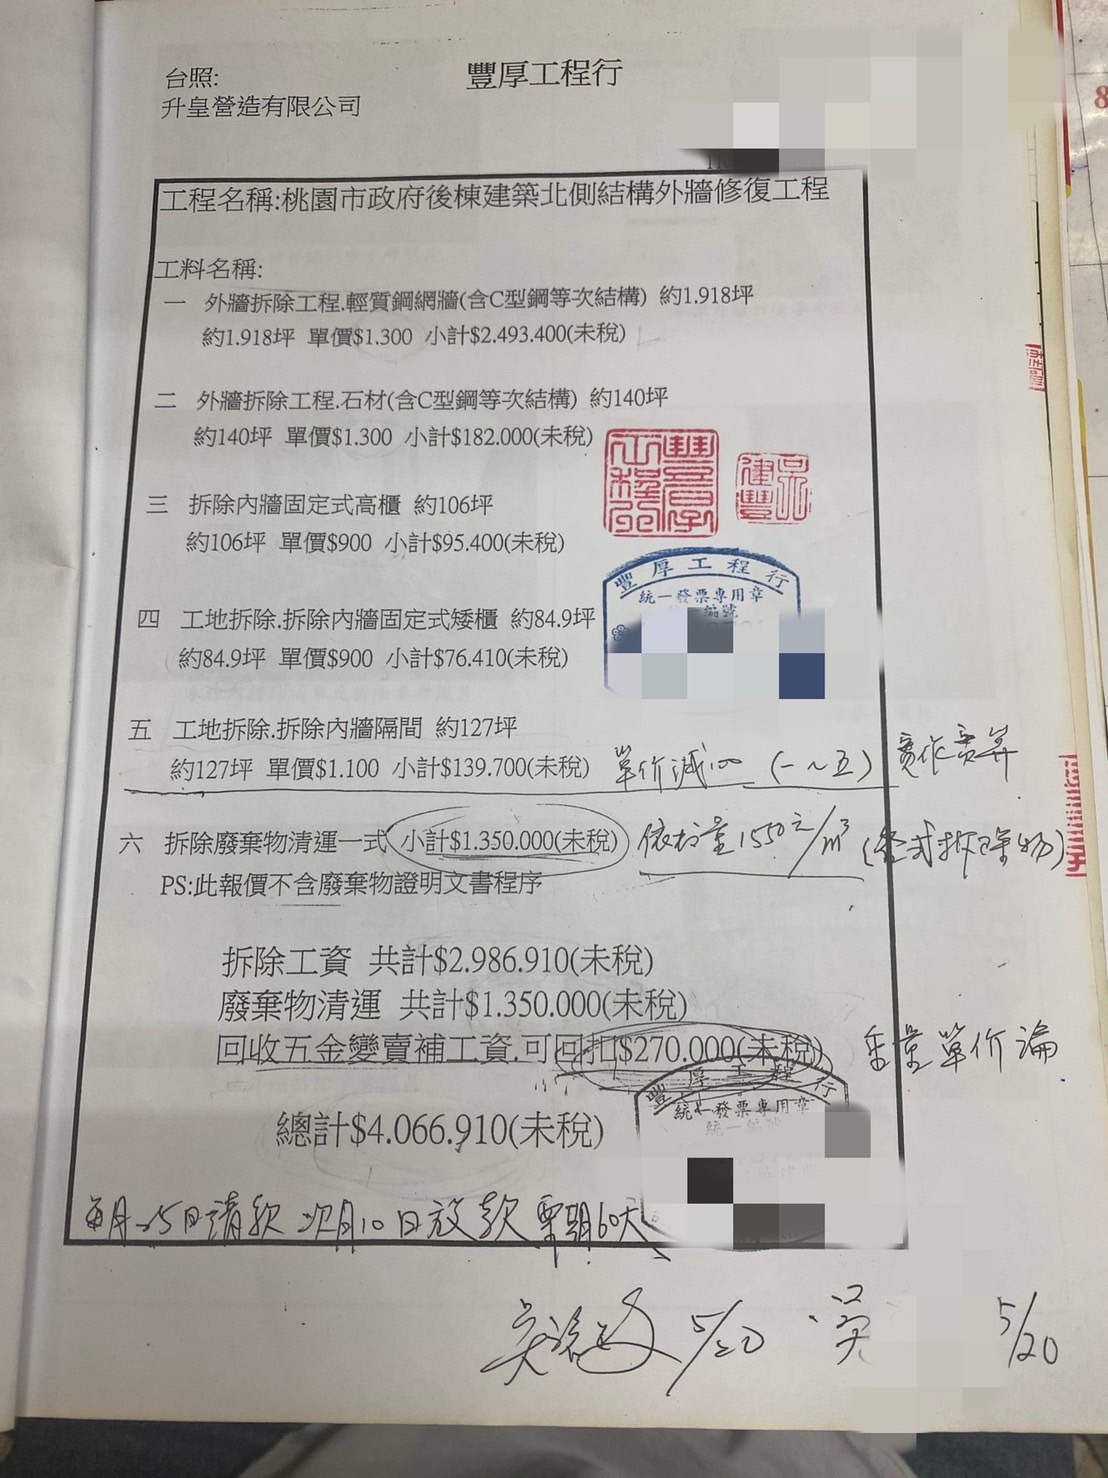 豐厚工程行
台照:
升皇營造有限公司
工程名稱:桃園市政府後棟建築北側結構外牆修復工程
工料名稱:
一 外牆拆除工程.輕質鋼網牆(含C型鋼等次結構) 約1.918坪
約1.918坪 單價$1.300 小計$2.493.400(未稅)
二 外牆拆除工程.石材(含C型鋼等次結構) 約140坪
約140坪 單價$1.300 小計$182.000(未稅)
三 拆除內牆固定式高櫃 約106坪
約106坪 單價$900 小計$95.400(未稅)
豐厚工程行
統一發票專用章
統一編號
四 工地拆除.拆除內牆固定式矮櫃 約84.9坪
約84.9坪 單價$900 小計$76.410(未稅)
五 工地拆除.拆除內牆隔間 約127坪
約127坪 單價$1.100 小計$139.700(未稅) 單价減100 (一~五) 實作實算
六 拆除廢棄物清運一式 小計$1.350.000(未稅) 依數量1550元/m³ (拆除物)
PS:此報價不含廢棄物證明文書程序
拆除工資 共計$2.986.910(未稅)
廢棄物清運 共計$1.350.000(未稅)
回收五金變賣補工資.可回扣$270.000(未稅) 重量單价論
豐厚工程行
統一發票專用章
統一編號
總計$4.066.910(未稅)
每月25日請款 次月10日放款 票期60天
吳 5/20 吳 5/20